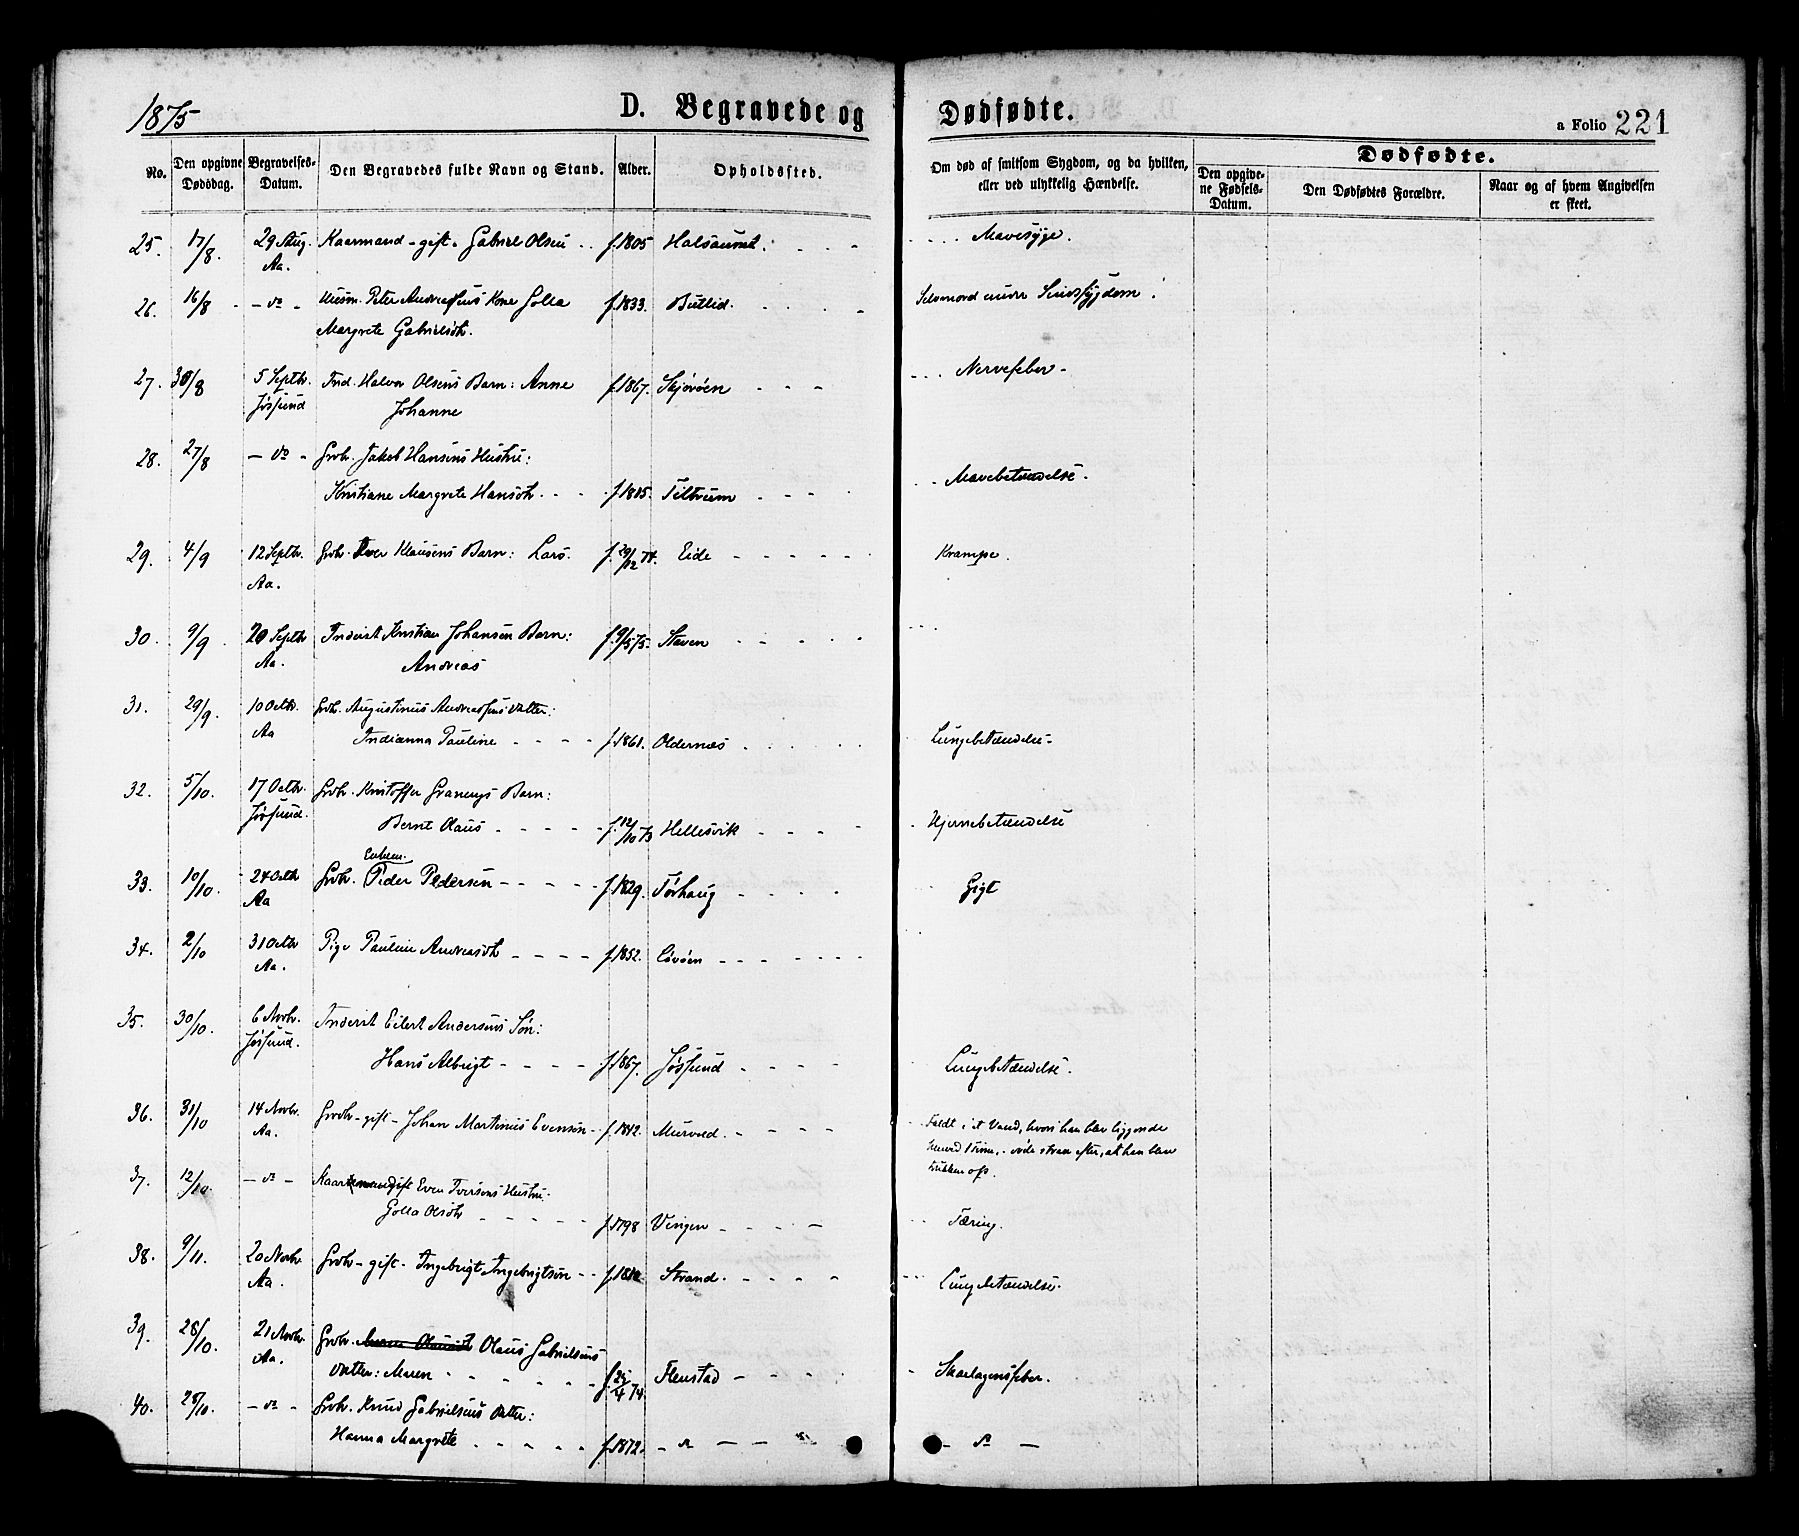 1875
D. Begravede og Dødfødte.
a Folio 221
No.
Den opgivne Dødsdag.
Begravelses-Datum.
Den Begravedes fulde Navn og Stand.
Alder.
Opholdssted.
Om død af smitsom Sygdom, og da hvilken, eller ved ulykkelig Hændelse.
Dødfødte.
Den opgivene Fødsels-Datum.
Den Dødfødtes Forældre.
Naar og af hvem Angivelsen er skeet.
25. 17/8 29 Aug. Kaarmand - gift - Gabriel Olsen f. 1805 Halsaunet. Mavesyge.
Aa.
26. 16/8 - do - Husm. Peter Andreassens Kone Golla f. 1833. Butlid. Selvmord under Sindssygdom.
Margrete Gabrielsdtr.
27. 30/8 5 Septbr. Ind. Halvor Olsens Barn: Anne f. 1867. Skjørøen Nervefeber -
Jøssund Johanne
28. 27/8 - do - Grbr. Jakob Hansens Hustru:
Kristiane Margrete Hansdtr. f. 1815. Tiltrum Mavebetændelse.
29. 4/9 12 Septbr. Grbr. Iver Klausens Barn: Lars. f. 29/12 74. Eide Krampe.
Aa.
30. 9/9 20 Septbr Inderst Kristian Johansen Barn: f. 9/5 75. Staven
Aa. Andreas
31. 29/9. 10 Octbr. Grbr. Augustinus Andreassens Datter:
Aa Indianna Pauline f. 1861. Oldernæs Lungebetændelse -
32. 5/10. 17 Octbr. Grbr. Kristoffer Granengs Barn:
Jøssund. Bernt Olaus f. 12/10 73 Hellesvik Hjernebetændelse
Enkem.
33. 10/10. 24 Octbr Grbr. Peder Pedersen f. 1829. Tørhaug Gigt
Aa
34. 2/10 31 Octbr Pige Pauline Andreasdtr f. 1852. Løvøen
Aa.
35. 30/10. 6 Novbr. Inderst Eilert Andersens Søn:
Jøssund. Hans Albrigt f. 1867. Jøssund Lungebetændelse.
36. 31/10 14 Novbr. Grbr - gift - Johan Martinus Evensen f. 1842. Murvold Faldt i et Vand, hvori han blev liggende
Aa. henved 1 Time, - døde strax efter, at han blev
trukken op.
37. 12/10. - do - Kaarmand gift Even Iversens Hustru:
Golla Olsdtr f. 1798 Vingen Tæring.
38. 9/11. 20 Novbr Grbr - gift - Ingebrigt Ingebrigtsen f. 1812 Strand. Lungebetændelse.
Aa.
39. 28/10. 21 Novbr. Grbr. Olaus Gabrielsens
Aa. Datter: Maren f. 25/4 74 Flenstad Skarlagensfeber.
40. 28/10. - do - Grbr. Knud Gabrielsens Datter:
Hanna Margrete f. 1872. - do - - do -